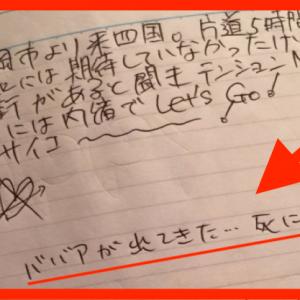 岡市より来四国。片道5時間
には期待していなかったけ
計があると聞きテンションM
には内緒でLet's Go!
サイコ
ババアが出てきた…死に